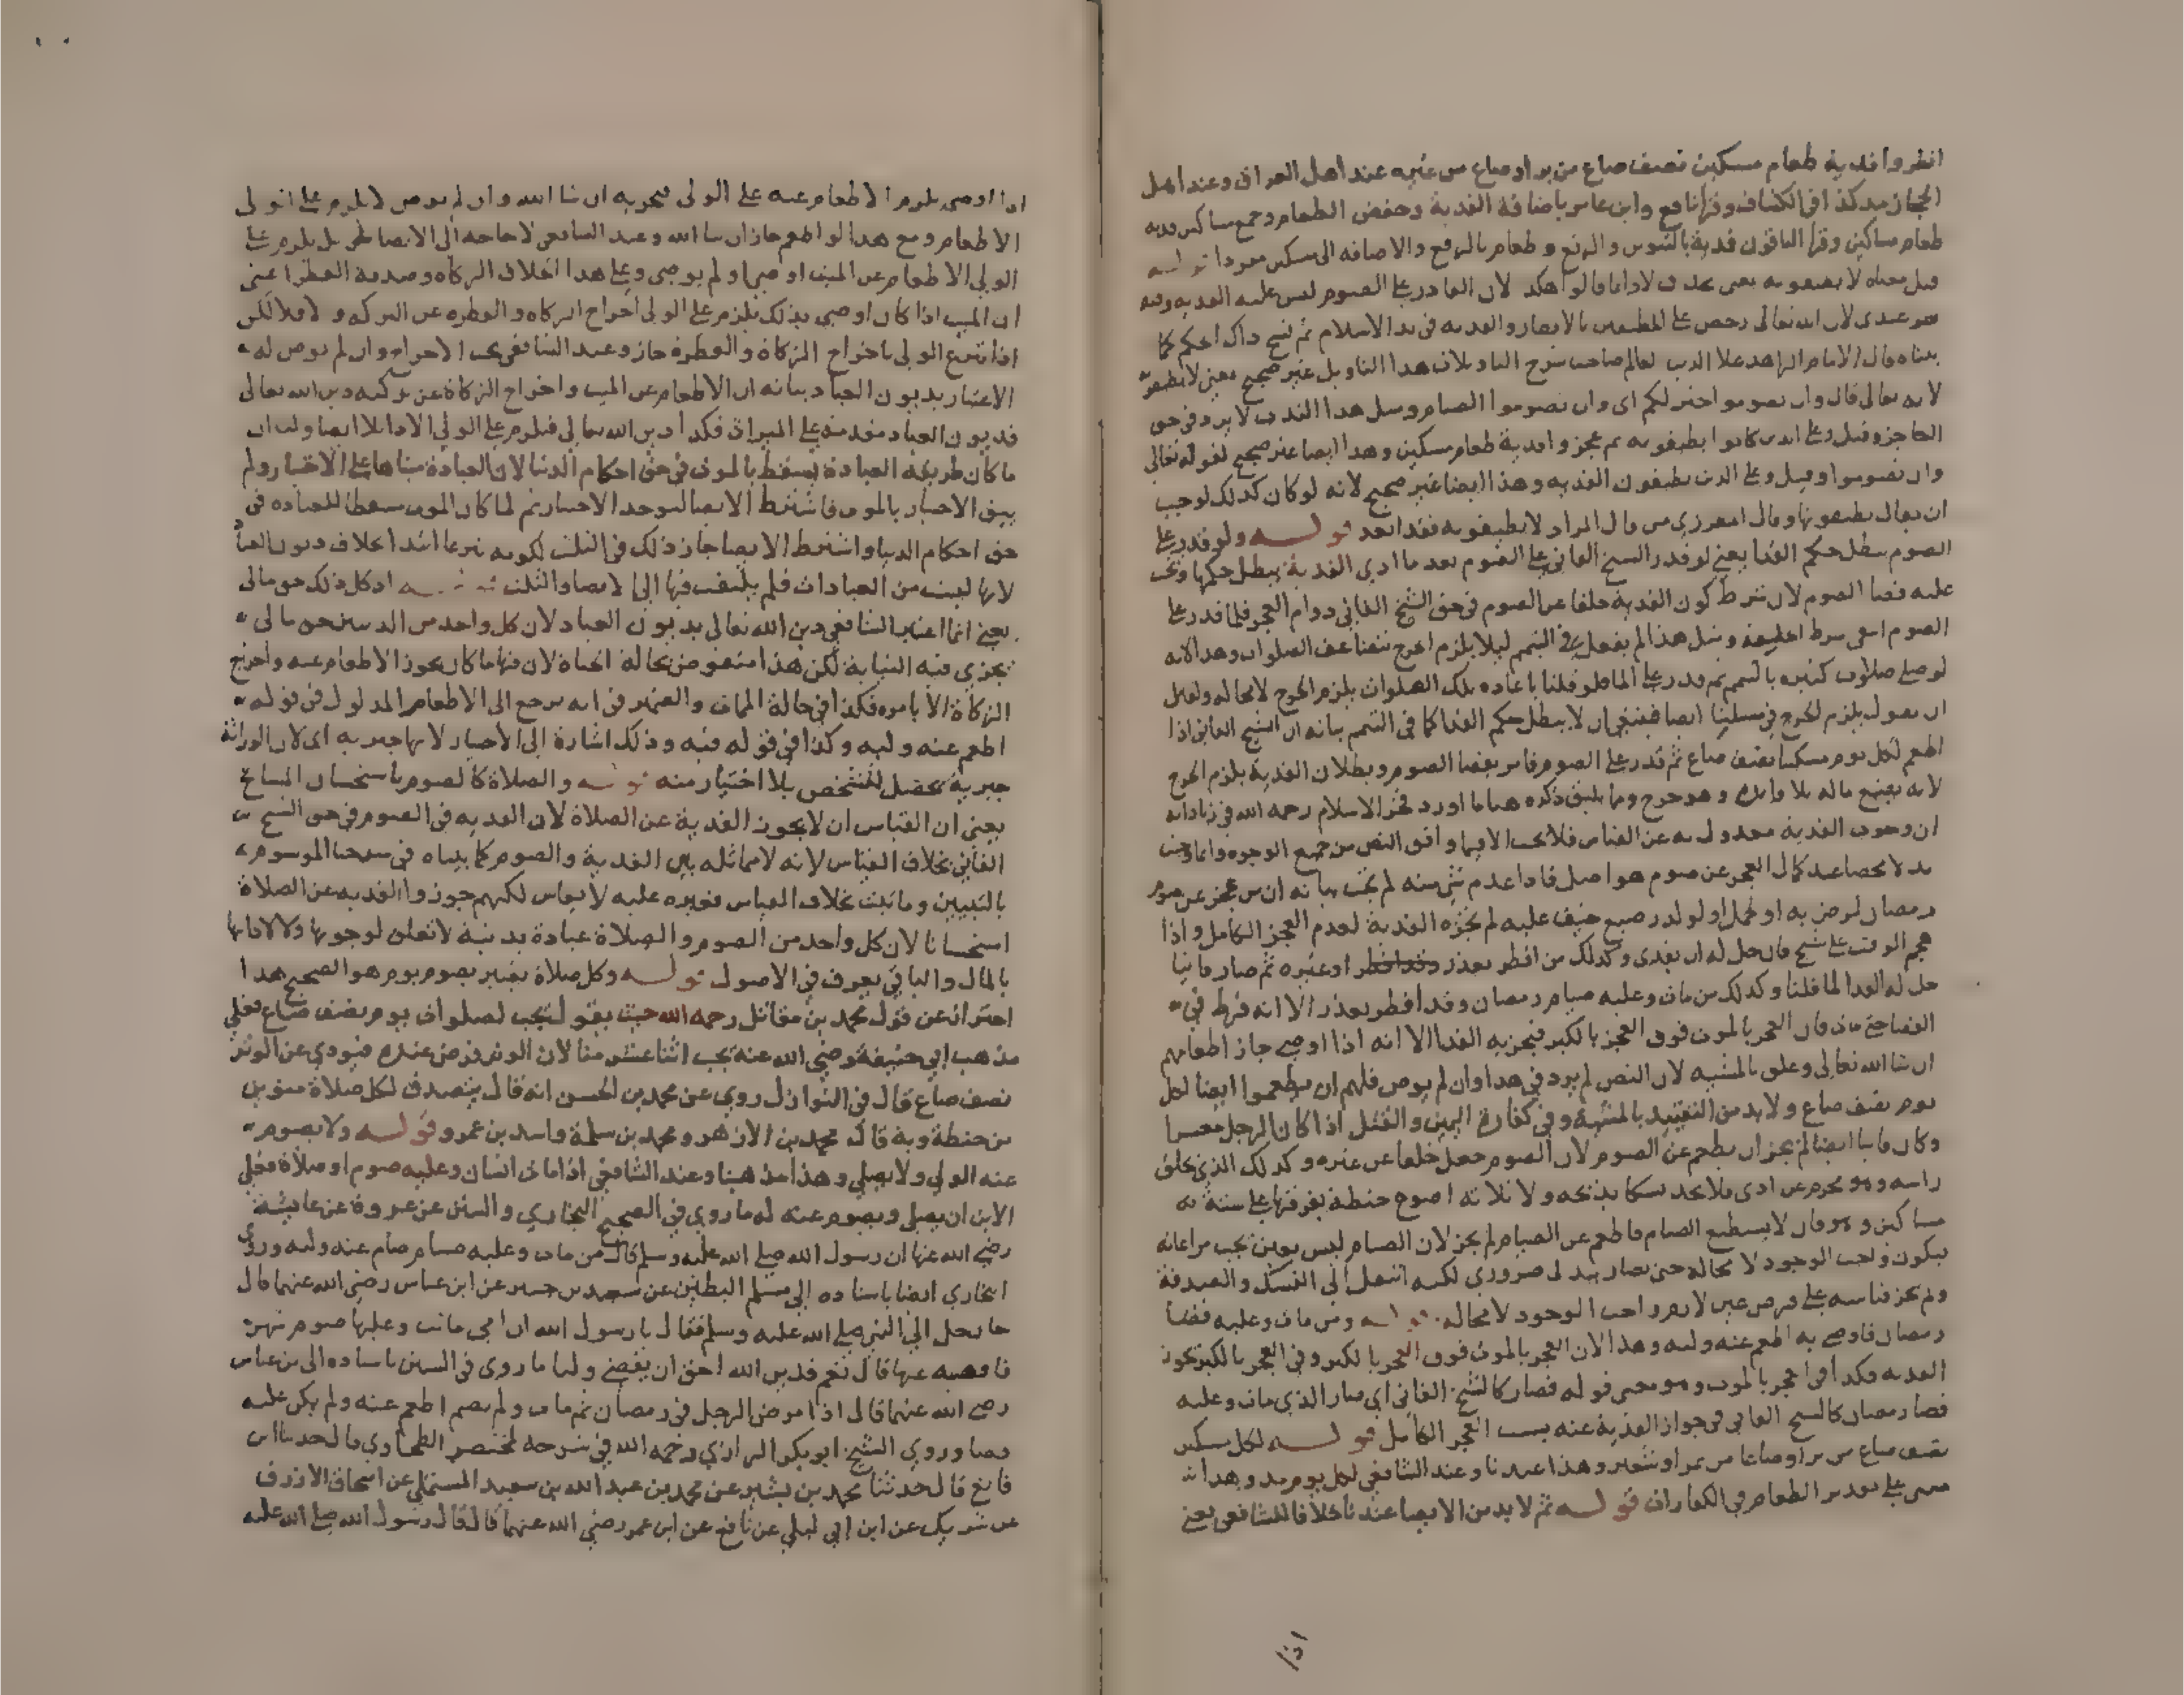 افطروا فدية طعام مسكين نصف صاع من بر او صاع من غيره عند اهل العراق وعند اهل
الحجاز مد كذا في الكشاف وقرا نافع وابن عامر باضافة الفدية وخفض الطعام وجمع مساكين فدية
طعام مساكين وقرا الباقون فدية بالتنوين والرفع وطعام بالرفع والاضافة الى مسكين قوله
قيل معناه لا يطيقونه يعني بحذف لا وانما قالوا هكذا لان القادر على الصوم ليس عليه الفدية وفيه
هو عندي لان الله تعالى رخص على المطيقين بالافطار والفدية في بدء الاسلام ثم نسخ ذاك الحكم كما
بيناه قال الامام الزاهد علاء الدين العالم صاحب شرح التاويلات هذا التاويل غير صحيح يعني لا يطيقونه
لانه تعالى قال وان تصوموا خير لكم اي وان تصوموا الصيام ومثل هذا الندب لا يرد في حق
العاجز وقيل وعلى الذين كانوا يطيقونه ثم عجزوا فدية طعام مسكين وهذا ايضا غير صحيح لقوله تعالى
وان تصوموا وقيل وعلى الذين يطيقون الفدية وهذا ايضا غير صحيح لانه لو كان كذلك لوجب
ان يقال يطيقونها وقال المطرزي من قال المراد لا يطيقونه فقد ابعد قوله ولو قدر على
الصوم يبطل حكم الفدا يعني لو قدر الشيخ الفاني على الصوم بعد ما ادى الفدية يبطل حكمها ويجب
عليه قضا الصوم لان شرط كون الفدية خلفا عن الصوم في حق الشيخ الفاني دوام العجز فلما قدر على
الصوم انتفى شرط الخليفة ومثل هذا لم يفعل في التيمم ليلا يلزم الحرج بتضاعف الصلوات وهذا لانه
لو صلى صلوات كثيرة بالتيمم ثم قدر على الماء فلو قلنا باعادة تلك الصلوات يلزم الحرج لا محالة ولقائل
ان يقول يلزم الحرج في مسئلتنا ايضا فينبغي ان لا يبطل حكم الفدا كما في التيمم بيانه ان الشيخ الفاني اذا
اطعم لكل يوم مسكينا نصف صاع ثم قدر على الصوم فامر بقضا الصوم وبطلان الفدية يلزم الحرج
لانه يضيع ماله بلا فائدة وهو حرج ومما يليق ذكره هنا ما اورد فخر الاسلام رحمه الله في زياداته
ان وجوب الفدية معدول به عن القياس فلا يجب الا فيما وافق النص من جميع الوجوه وانما وجبت
بدلا محضا عند كمال العجز عن صوم هو اصل فاذا عدم شي منه لم يجب بيانه ان من عجز عن صوم
رمضان لمرض به او لحمل او لولد رضيع خيف عليه لم يجزه الفدية لعدم العجز الكامل واذا
هجم الوقت على شيخ فان حل له ان يفدى وكذلك من افطر بعذر وقد افطر او غيره ثم صار فانيا
حل له الفدا لما قلنا وكذلك من مات وعليه صيام رمضان وقد افطر بعذر الا انه فرط في
القضا حتى مات فان العجز بالموت فوق العجز بالكبر فيجزيه الفدا الا انه اذا اوصى جاز اطعامهم
ان شا الله تعالى وعلق بالمشية لان النص لم يرد في هذا وان لم يوص فلهم ان يطعموا ايضا لكل
يوم نصف صاع ولا بد من التقييد بالمشية وفي كفارة اليمين والقتل اذا كان الرجل معسرا
وكان فانيا ايضا لم يجز ان يطعم عن الصوم لان الصوم جعل خلفا عن غيره وكذلك الذي يحلق
راسه وهو محرم عن اذى فلا يجد نسكا يذبحه ولا ثلاثة اصوع حنطة يفرقها على ستة
مساكين وهو فان لا يستطيع الصيام فاطعم عن الصيام لم يجز لان الصيام ليس بعين تجب مراعاته
فيكون واجب الوجود لا محالة حتى يصار الى بدل ضروري لكنه انتقل الى النسك والصدقة
ولم يجز قياسه على فرض عين لازم واجب الوجود لا محالة قوله ومن مات وعليه قضا
رمضان فاوصى به اطعم عنه وليه وهذا لان العجز بالموت فوق العجز بالكبر وفي العجز بالكبر يجوز
الفدية فكذا في العجز بالموت وهو معنى قوله فصار كالشيخ الفاني اي صار الذي مات وعليه
قضا رمضان كالشيخ الفاني في جواز الفدية عنه بسبب العجز الكامل قوله لكل مسكين
نصف صاع من بر او صاعا من تمر او شعير وهذا عندنا وعند الشافعي لكل يوم مد وهذا
مبني على تقدير الطعام في الكفارات قوله ثم لا بد من الايصا عندنا خلافا للشافعي يعني
اذا
اذا اوصى يلزم الاطعام عنه على الولي فيجزيه ان شا الله وان لم يوص لا يلزم على الولي
الاطعام ومع هذا لو اطعم جاز ان شا الله وعند الشافعي لا حاجة الى الايصا بل يلزم على
الولي الاطعام عن الميت اوصى او لم يوص وعلى هذا الخلاف الزكاة وصدقة الفطر اعني
ان الميت اذا كان اوصى بذلك يلزم على الولي اخراج الزكاة والفطرة عن التركة ولا فلا لكن
اذا تبرع الولي باخراج الزكاة والفطرة جاز وعند الشافعي يجب الاخراج وان لم يوص له
الاعتبار بديون العباد بيانه ان الاطعام عن الميت واخراج الزكاة عن تركته دين الله تعالى
فديون العباد مقدمة على الميراث فكذا دين الله تعالى فيلزم على الولي الادا بلا ايصا ولنا ان
ما كان طريقه العبادة يسقط بالموت في حق احكام الدنيا لان العبادة مبناها على الاختيار ولم
يبق الاختيار بالموت فاشترط الايصا ليوجد الاختيار ثم لما كان الموت مسقطا للعبادة في
حق احكام الدنيا واشترط الايصا جاز ذلك في الثلث لكونه تبرعا ابتدا بخلاف ديون العباد
لانها ليست من العبادات فلم يلتفت فيها الى الايصا والثلث قوله اذ كل ذلك حق مالي
يعني انما اعتبر الشافعي دين الله تعالى بديون العباد لان كل واحد من الدينين حق مالي
تجزي فيه النيابة لكن هذا منقوض بحالة الحياة لان فيها ما كان يجوز الاطعام عنه واخراج
الزكاة الا بامره فكذا في حالة الممات والضمير في انه يرجع الى الاطعام المدلول في قوله
اطعم عنه وليه وكذا في قوله فيه وذلك اشارة الى الاختيار لانها جبرية اي لان الوراثة
جبرية تحصل للشخص بلا اختيار منه قوله والصلاة كالصوم باستحسان المشايخ
يعني ان القياس ان لا يجوز الفدية عن الصلاة لان الفدية في الصوم في حق الشيخ
الفاني بخلاف القياس لانه لا مماثلة بين الفدية والصوم كما بيناه في شرحنا الموسوم
بالتبيين وما ثبت بخلاف القياس فغيره عليه لا يقاس لكنهم جوزوا الفدية عن الصلاة
استحسانا لان كل واحد من الصوم والصلاة عبادة بدنية لا تعلق لوجوبها ولا لادائها
بالمال والباقي يعرف في الاصول قوله وكل صلاة يعتبر بصوم يوم هو الصحيح هذا
احتراز عن قول محمد بن مقاتل رحمه الله حيث يقول تجب لصلوات يوم نصف صاع فعلى
مذهب ابي حنيفة رضي الله عنه يجب اثنا عشر منا لان الوتر فرض عنده فيودي عن الوتر
نصف صاع قال في النوازل روي عن محمد بن الحسن انه قال يتصدق لكل صلاة منوين
من حنطة وبه قال محمد بن الازهر ومحمد بن سلمة واسد بن عمرو قوله ولا يصوم
عنه الولي ولا يصلي وهذا مذهبنا وعند الشافعي اذا مات انسان وعليه صوم او صلاة فعلى
الابن ان يصلي ويصوم عنه له ما روي في الصحيح البخاري والسنن عن عروة عن عايشة
رضي الله عنها ان رسول الله صلى الله عليه وسلم قال من مات وعليه صيام صام عنه وليه وروى
البخاري ايضا باسناده الى مسلم البطين عن سعيد بن جبير عن ابن عباس رضي الله عنهما قال
جا رجل الى النبي صلى الله عليه وسلم فقال يا رسول الله ان امي ماتت وعليها صوم شهر
فاقضيه عنها قال نعم فدين الله احق ان يقضى ولنا ما روى في السنن باسناده الى بن عباس
رضي الله عنهما قال اذا مرض الرجل في رمضان ثم مات ولم يصم اطعم عنه ولم يكن عليه
قضا وروي الشيخ ابو بكر الرازي رحمه الله في شرحه لمختصر الطحاوي قال حدثنا ابن
قانع قال حدثنا محمد بن بشير عن محمد بن عبد الله بن سعيد المستملي عن اسحاق الازرق
عن شريك عن ابن ابي ليلى عن نافع عن ابن عمر رضي الله عنهما قال قال رسول الله صلى الله عليه